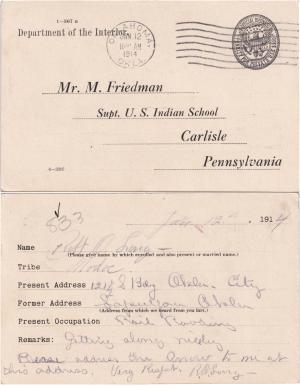 1-267 a
Department of the Interior
OKLAHOMA, OKLA.
JAN 12
AM
1914
Mr. M. Friedman
Supt. U. S. Indian School
Carlisle
Pennsylvania
6-286
533
Jan 12 1914
Name
(Please give name by which enrolled and also present or married name.)
Tribe Modoc
Present Address 121½ S City
Former Address
(Address from which we heard from you last.)
Present Occupation
Remarks: Getting along nicely
Please address the answer to me at
this address. Very Respt.